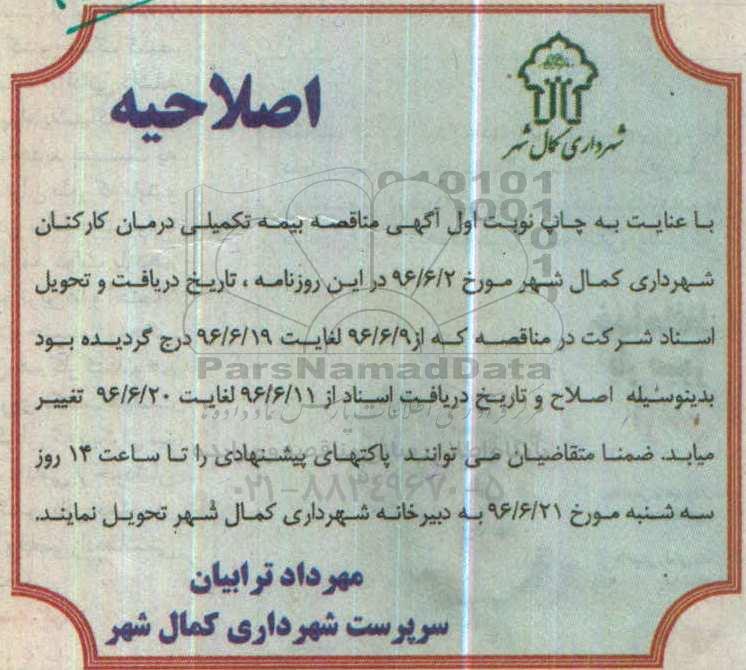 شهرداری کمال شهر
اصلاحیه
با عنایت به چاپ نوبت اول آگهی مناقصه بیمه تکمیلی درمان کارکنان
شهرداری کمال شهر مورخ ۹۶/۶/۲ در این روزنامه ، تاریخ دریافت و تحویل
اسناد شرکت در مناقصه که از ۹۶/۶/۹ لغایت ۹۶/۶/۱۹ درج گردیده بود
بدینوسیله اصلاح و تاریخ دریافت اسناد از ۹۶/۶/۱۱ لغایت ۹۶/۶/۲۰ تغییر
میابد. ضمنا متقاضیان می توانند پاکتهای پیشنهادی را تا ساعت ۱۴ روز
سه شنبه مورخ ۹۶/۶/۲۱ به دبیرخانه شهرداری کمال شهر تحویل نمایند.
مهرداد ترابیان
سرپرست شهرداری کمال شهر
ParsNamadData
۰۲۱-۸۸۳۴۹۶۷۰-۵